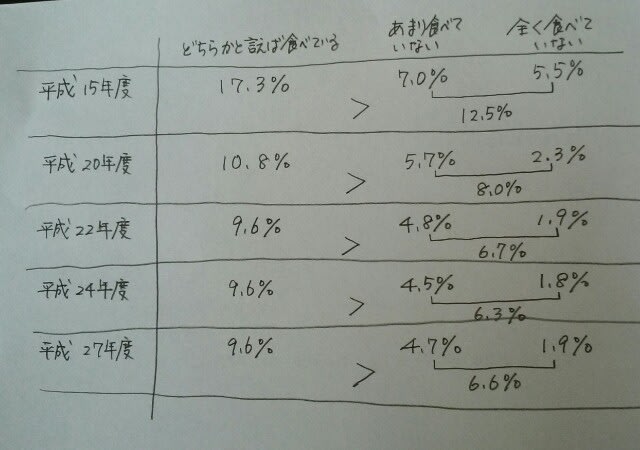 どちらかと言えば食べている あまり食べて 全く食べて
いない いない
平成15年度 17.3% 7.0% 5.5%
> 12.5%
平成20年度 10.8% 5.7% 2.3%
> 8.0%
平成22年度 9.6% 4.8% 1.9%
> 6.7%
平成24年度 9.6% 4.5% 1.8%
> 6.3%
平成27年度 9.6% 4.7% 1.9%
> 6.6%